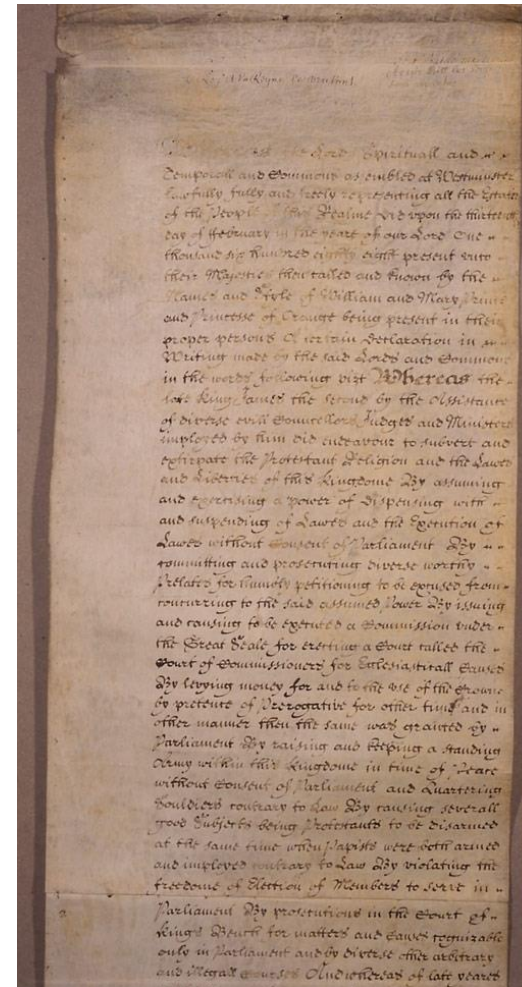 Le Roy & la Reyne le veulent
Whereas the Lords Spirituall and
Temporall and Commons assembled at Westminster
lawfully fully and freely representing all the Estates
of the People of this Realme did upon the thirteenth
day of February in the yeare of our Lord One
thousand six hundred eighty eight present unto
their Majesties then called and known by the
Names and Stile of William and Mary Prince
and Princesse of Orange being present in their
proper persons A certain Declaration in
Writing made by the said Lords and Commons
in the words following vizt Whereas the
late King James the second by the Assistance
of diverse evill Councellors Judges and Ministers
imployed by him did endeavour to subvert and
extirpate the Protestant Religion and the Lawes
and Liberties of this Kingdome By assuming
and exercising a power of Dispensing with
and suspending of Lawes and the Execution of
Lawes without Consent of Parliament By
committing and prosecuting diverse worthy
Prelates for humbly petitioning to be excused from
concurring to the said assumed Power By issuing
and causing to be executed a Commission under
the Great Seale for erecting a Court called the
Court of Commissioners for Ecclesiasticall Causes
By levying money for and to the use of the Crowne
by pretence of Prerogative for other time and in
other manner then the same was granted by
Parliament By raising and keeping a standing
Army within this Kingdome in time of Peace
without Consent of Parliament and Quartering
Souldiers contrary to Law By causing severall
good Subjects being Protestants to be disarmed
at the same time when Papists were both armed
and imployed contrary to Law By violating the
freedome of Election of Members to serve in
Parliament By prosecutions in the Court of
Kings Bench for matters and Causes cognizable
only in Parliament and by diverse other arbitrary
and illegall Courses And whereas of late yeares